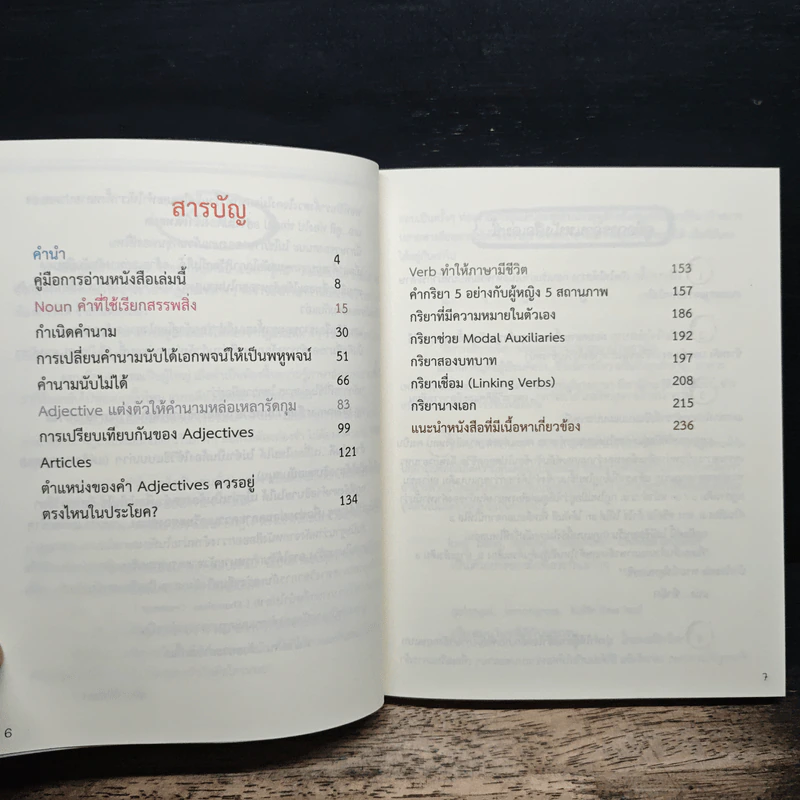 สารบัญ
คำนำ 4
คู่มือการอ่านหนังสือเล่มนี้ 8
Noun คำที่ใช้เรียกสรรพสิ่ง 15
กำเนิดคำนาม 30
การเปลี่ยนคำนามนับได้เอกพจน์ให้เป็นพหูพจน์ 51
คำนามนับไม่ได้ 66
Adjective แต่งตัวให้คำนามหล่อเหลารัดกุม 83
การเปรียบเทียบกันของ Adjectives 99
Articles 121
ตำแหน่งของคำ Adjectives ควรอยู่
ตรงไหนในประโยค? 134
6
Verb ทำให้ภาษามีชีวิต 153
คำกริยา 5 อย่างกับผู้หญิง 5 สถานภาพ 157
กริยาที่มีความหมายในตัวเอง 186
กริยาช่วย Modal Auxiliaries 192
กริยาสองบทบาท 197
กริยาเชื่อม (Linking Verbs) 208
กริยานางเอก 215
แนะนำหนังสือที่มีเนื้อหาเกี่ยวข้อง 236
7